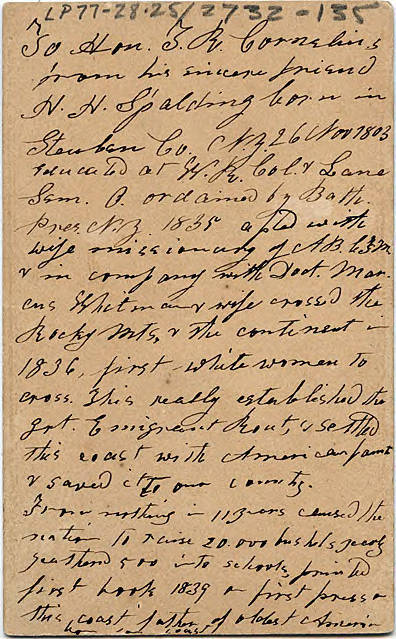 LP77-28.25/2732-135
To Hon. T. R. Cornelius
from his sincere friend
H. H. Spalding born in
Steuben Co. N.Y. 26 Nov 1803
educated at W. R. Col. & Lane
Sem. O. ordained by Bath
Pres. N.Y. 1835 aptd with
wife missionary of A B C F M
& in company with Doct. Mar-
cus Whitman & wife crossed the
Rocky Mts, & the continent in
1836, first white women to
cross. This really established the
grt. Emigrant Rout, & settled
this coast with American
& saved it to our country.
From nothing in 11 years caused the
nation to raise 20.000 bushels
gathered 500 into schools, printed
first book 1839 on first press on
this coast father of oldest American